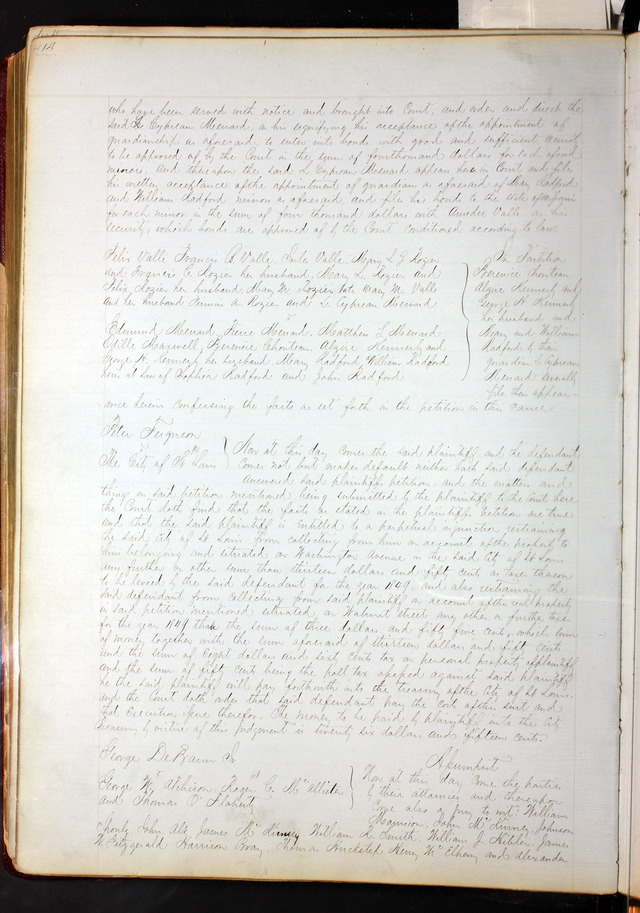 414
who have been served with notice and brought into Court, and order and direct the
said L. Cyprean Menard, on his signifying his acceptance of the appointment of
guardianship as aforesaid to enter into bond with good and sufficient security
to be approved of by the Court in the sum of four thousand dollars for each of said
minors. And thereupon the said L Cyprean Menard appears here in Court and files
his written acceptance of the appointment of guardian as aforesaid of Mary Radford
and William Radford minors as aforesaid and files his bonds to the State of Missouri
for each minor in the sum of four thousand dollars with Amedee Valle as his
security, which bonds are approved of by the Court conditioned according to law.
Felix Valle Francis A. Valle, Jule Valle, Mary L. G. Rozier
and Francis C. Rozier her husband, Mary L. Rozier and
Felix Rozier her husband, Mary M. Rozier late Mary M. Valle
and her husband Firman A. Rozier and L. Cyprean Menard
vs
Edmund Menard, Pierre Menard, Matthew L. Menard
Odille Maxwell, Berenice Chouteau Alzire Kennerly and
George H. Kennerly her husband Mary Radford, William Radford
heirs at law of Sophia Radford and John Radford
In Partition
Berenice Chouteau
Alzire Kennerly and
George H. Kennerly
her husband, and
Mary and William
Radford by their
guardian L. Cyprean
Menard severally
file their appear-
ance herein confessing the facts as set forth in the petition in this cause
Peter Ferguson
vs
The City of St Louis
Now at this day comes the said plaintiff and the defendant
Come not but makes default neither hath said defendant
answered said plaintiffs petition and the matters and
things in said petition mentioned being submitted by the plaintiff to the Court here
the Court doth find that the facts as stated in the plaintiffs petition are true
and that the said plaintiff is entitled to a perpetual injunction restraining
the said City of St Louis from collecting from him on account of the property to
him belonging and situated on Washington Avenue in the said City of St Louis
any further or other sum than thirteen dollars and fifty cents as taxes thereon
to be levied by the said defendant for the year 1849, and also restraining the
said defendant from collecting from said plaintiff on account of the real property
in said petition mentioned situated on Walnut street any other or further taxes
for the year 1849 than the sum of three dollars and fifty five cents, which sum
of money together with the sum aforesaid of thirteen dollars and fifty cents
and the sum of eight dollars and sixty cents tax on personal property of plaintiff
and the sum of fifty cents being the poll tax assessed against said plaintiff
he the said plaintiff will pay forthwith into the treasury of the City of St Louis
and the Court doth order that said defendant pay the costs of this suit and
that execution issue therefor. The money to be paid by plaintiff into the City
treasury by virtue of this judgment is twenty six dollars and fifteen cents.
George DeBaum Sr
vs
George W. Atchison Roger C. McAllister
and Thomas O'Flaherty
Assumpsit
Now at this day come the parties
by their attorneys and thereupon
come also a jury to wit: William
Mannison, John McKinney, Johnson
Shorly, John Ald, James McKinney William L. Smith, William J. Kibler, James
W. Fitzgerald Harrison Gray, Thomas Huckstep Henry McElheny and Alexander